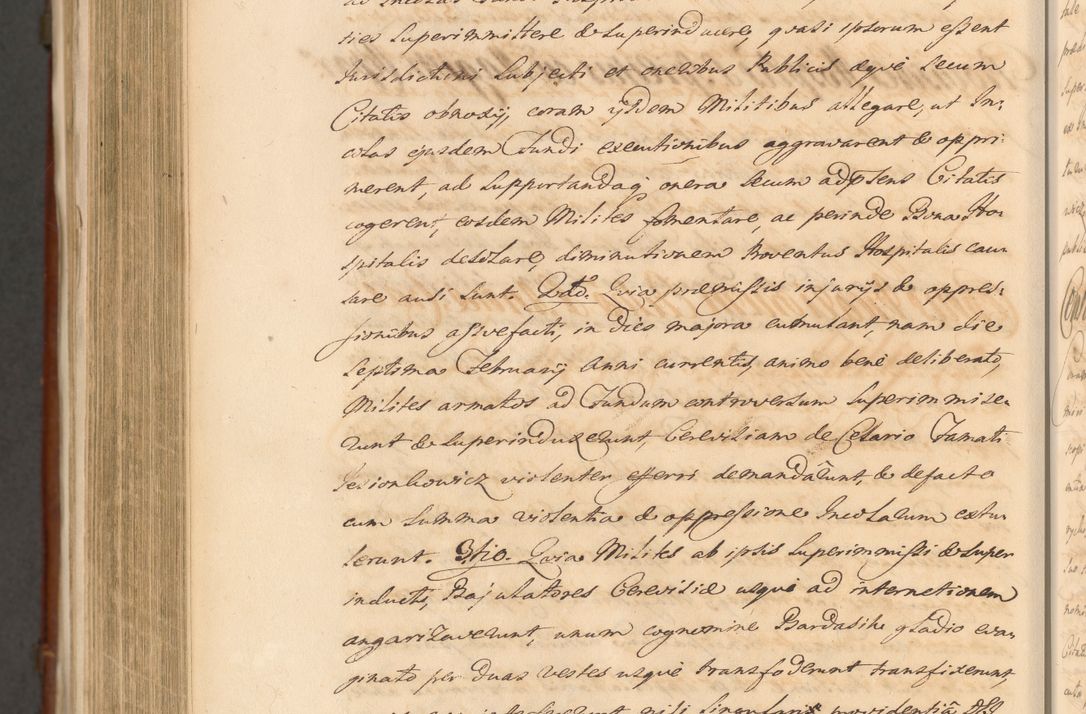 ties Superimmittere & superinducere, quasi ipsorum essent
Jurisdictioni Subjecti et oneribus Publicis æque secum
Citatis obnoxij, coram ijsdem Militibus allegare, ut In-
colas ejusdem Fundi executionibus aggravarent & oppri-
merent, ad supportandaq; onera secum adpsens Citatis
cogerent, eosdem Milites fomentare, ac perinde Bona Ho-
spitalis desolare, diminutionem Proventus Hospitalis cau-
sare ausi sunt. 2do. Quia præmissis injurijs & oppres-
sionibus assvefacti, in dies majora cumulant, nam die
Septima Februarij Anni currentis, animo bene deliberato,
Milites armatos ad Fundum controversum Superimmise-
runt & superinduxerunt Cerevisiam de Celario Famati
Jezionkowicz violenter efferri demandarunt, & defacto
cum summa violentia & oppressione Incolarum extu-
lerunt. 3tio. Quia Milites ab ipsis superimmissi & super
inducti, Bajulatores Cerevisiæ usque ad internetionem
angarizaverunt, unum cognomine Bardasik gladio eva-
ginato per duas vestes usque transfoderunt transfixerunt,
nisi singularis providentia